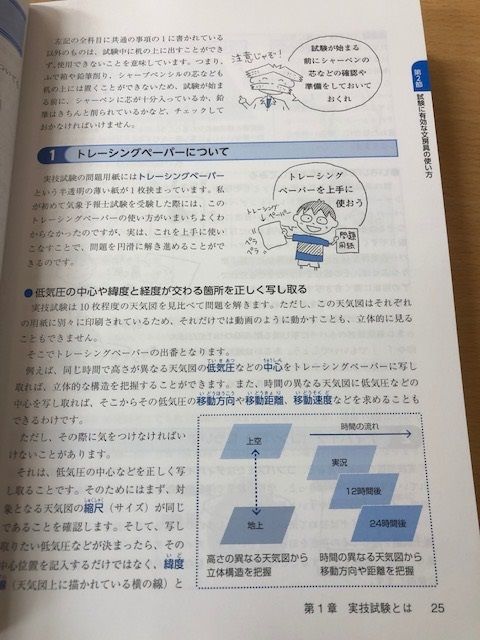 左記の全科目に共通の事項の1に書かれている
以外のものは、試験中に机の上に出すことができ
ず、使用できないことを意味しています。つまり、
ふで箱や鉛筆削り、シャープペンシルの芯なども
机の上には置くことができないため、試験が始ま
る前に、シャーペンに芯が十分入っているか、鉛
筆はきちんと削られているかなど、チェックして
おかなければいけません。
注意じゃぞ!
試験が始まる
前にシャーペンの
芯などの確認や
準備をしておいて
おくれ
第2節 試験に有効な文房具の使い方
1 トレーシングペーパーについて
実技試験の問題用紙にはトレーシングペーパー
という半透明の薄い紙が1枚挟まっています。私
が初めて気象予報士試験を受験した際には、この
トレーシングペーパーの使い方がいまいちよくわ
からなかったのですが、実は、これを上手に使い
こなすことで、問題を円滑に解き進めることがで
きるのです。
トレーシング
ペーパーを上手に
使おう
トレーシング
ペーパー
プラ
プラ
問題
用紙
●低気圧の中心や緯度と経度が交わる箇所を正しく写し取る
実技試験は10枚程度の天気図を見比べて問題を解きます。ただし、この天気図はそれぞれ
の用紙に別々に印刷されているため、それだけでは動画のように動かすことも、立体的に見る
こともできません。
そこでトレーシングペーパーの出番となります。
例えば、同じ時間で高さが異なる天気図の低気圧などの中心をトレーシングペーパーに写し
取れば、立体的な構造を把握することができます。また、時間の異なる天気図に低気圧などの
中心を写し取れば、そこからその低気圧の移動方向や移動距離、移動速度などを求めることも
できるわけです。
ただし、その際に気をつけなければい
けないことがあります。
それは、低気圧の中心などを正しく写
し取ることです。そのためにはまず、対
象となる天気図の縮尺（サイズ）が同じ
であることを確認します。そして、写し
取りたい低気圧などが決まったら、その
中心位置を記入するだけではなく、緯度
線（天気図上に描かれている横の線）と
上空
地上
高さの異なる天気図から
立体構造を把握
時間の流れ
実況
12時間後
24時間後
時間の異なる天気図から
移動方向や距離を把握
第1章 実技試験とは 25